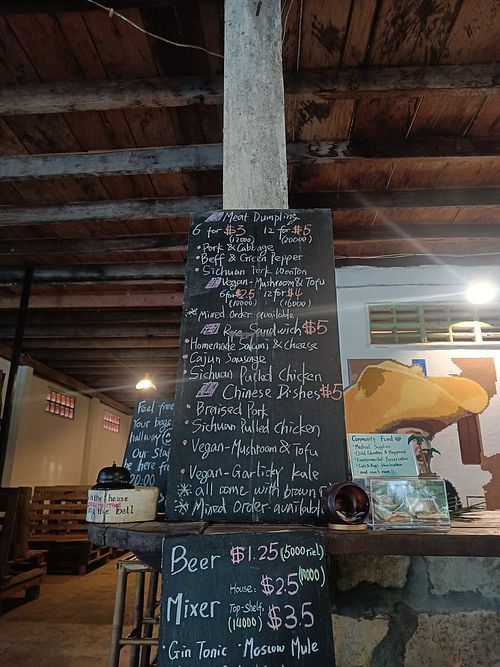 Meat Dumpling
6 for $3 12 for $5
(12000) (20000)
Pork & Cabbage
Beff & Green Pepper
Sichuan Pork Wonton
Vegan-Mushroom & Tofu
6 for $2.5 12 for $4
(10000) (16000)
* Mixed Order available
Rye Sandwich $5
Homemade Salami & cheese
Cajun Sausage
Sichuan Pulled Chicken
Chinese Dishes $5
Braised Pork
Sichuan Pulled Chicken
Vegan-Mushroom & Tofu
Vegan-Garlicky kale
* all come with brown
* Mixed Order available
Feel free
Your bags
hallway
Our Staf
be here fr
20:00
the house
the bell
Community Fund
Medical Supplies
Beer $1.25 (5000 riel)
House: $2.5 (10000)
Mixer Top-Shelf: $3.5
(14000)
Gin Tonic · Moscow Mule